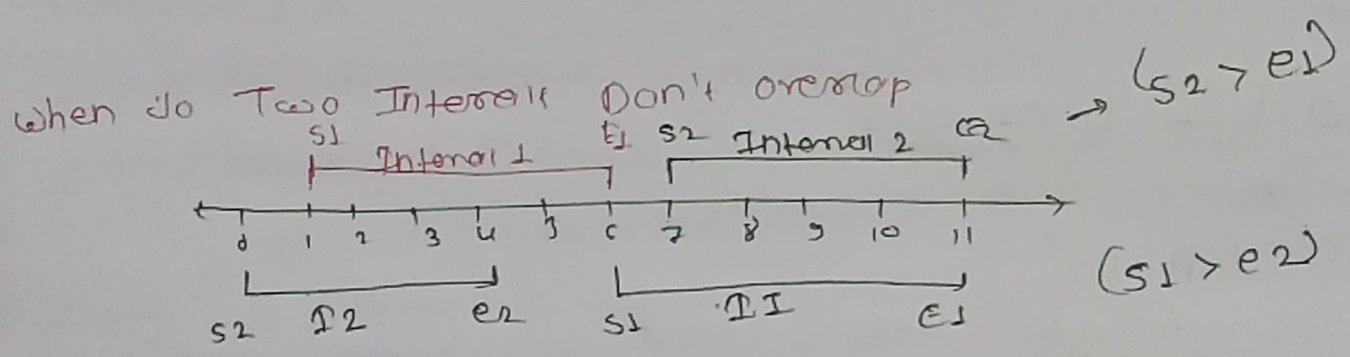 When do Two Intervals Don't overlap → (s2 > e1)
S1 Interval 1 E1 S2 Interval 2 e2
0 1 2 3 4 5 6 7 8 9 10 11
S2 I2 e2 S1 I1 E1 (S1 > e2)